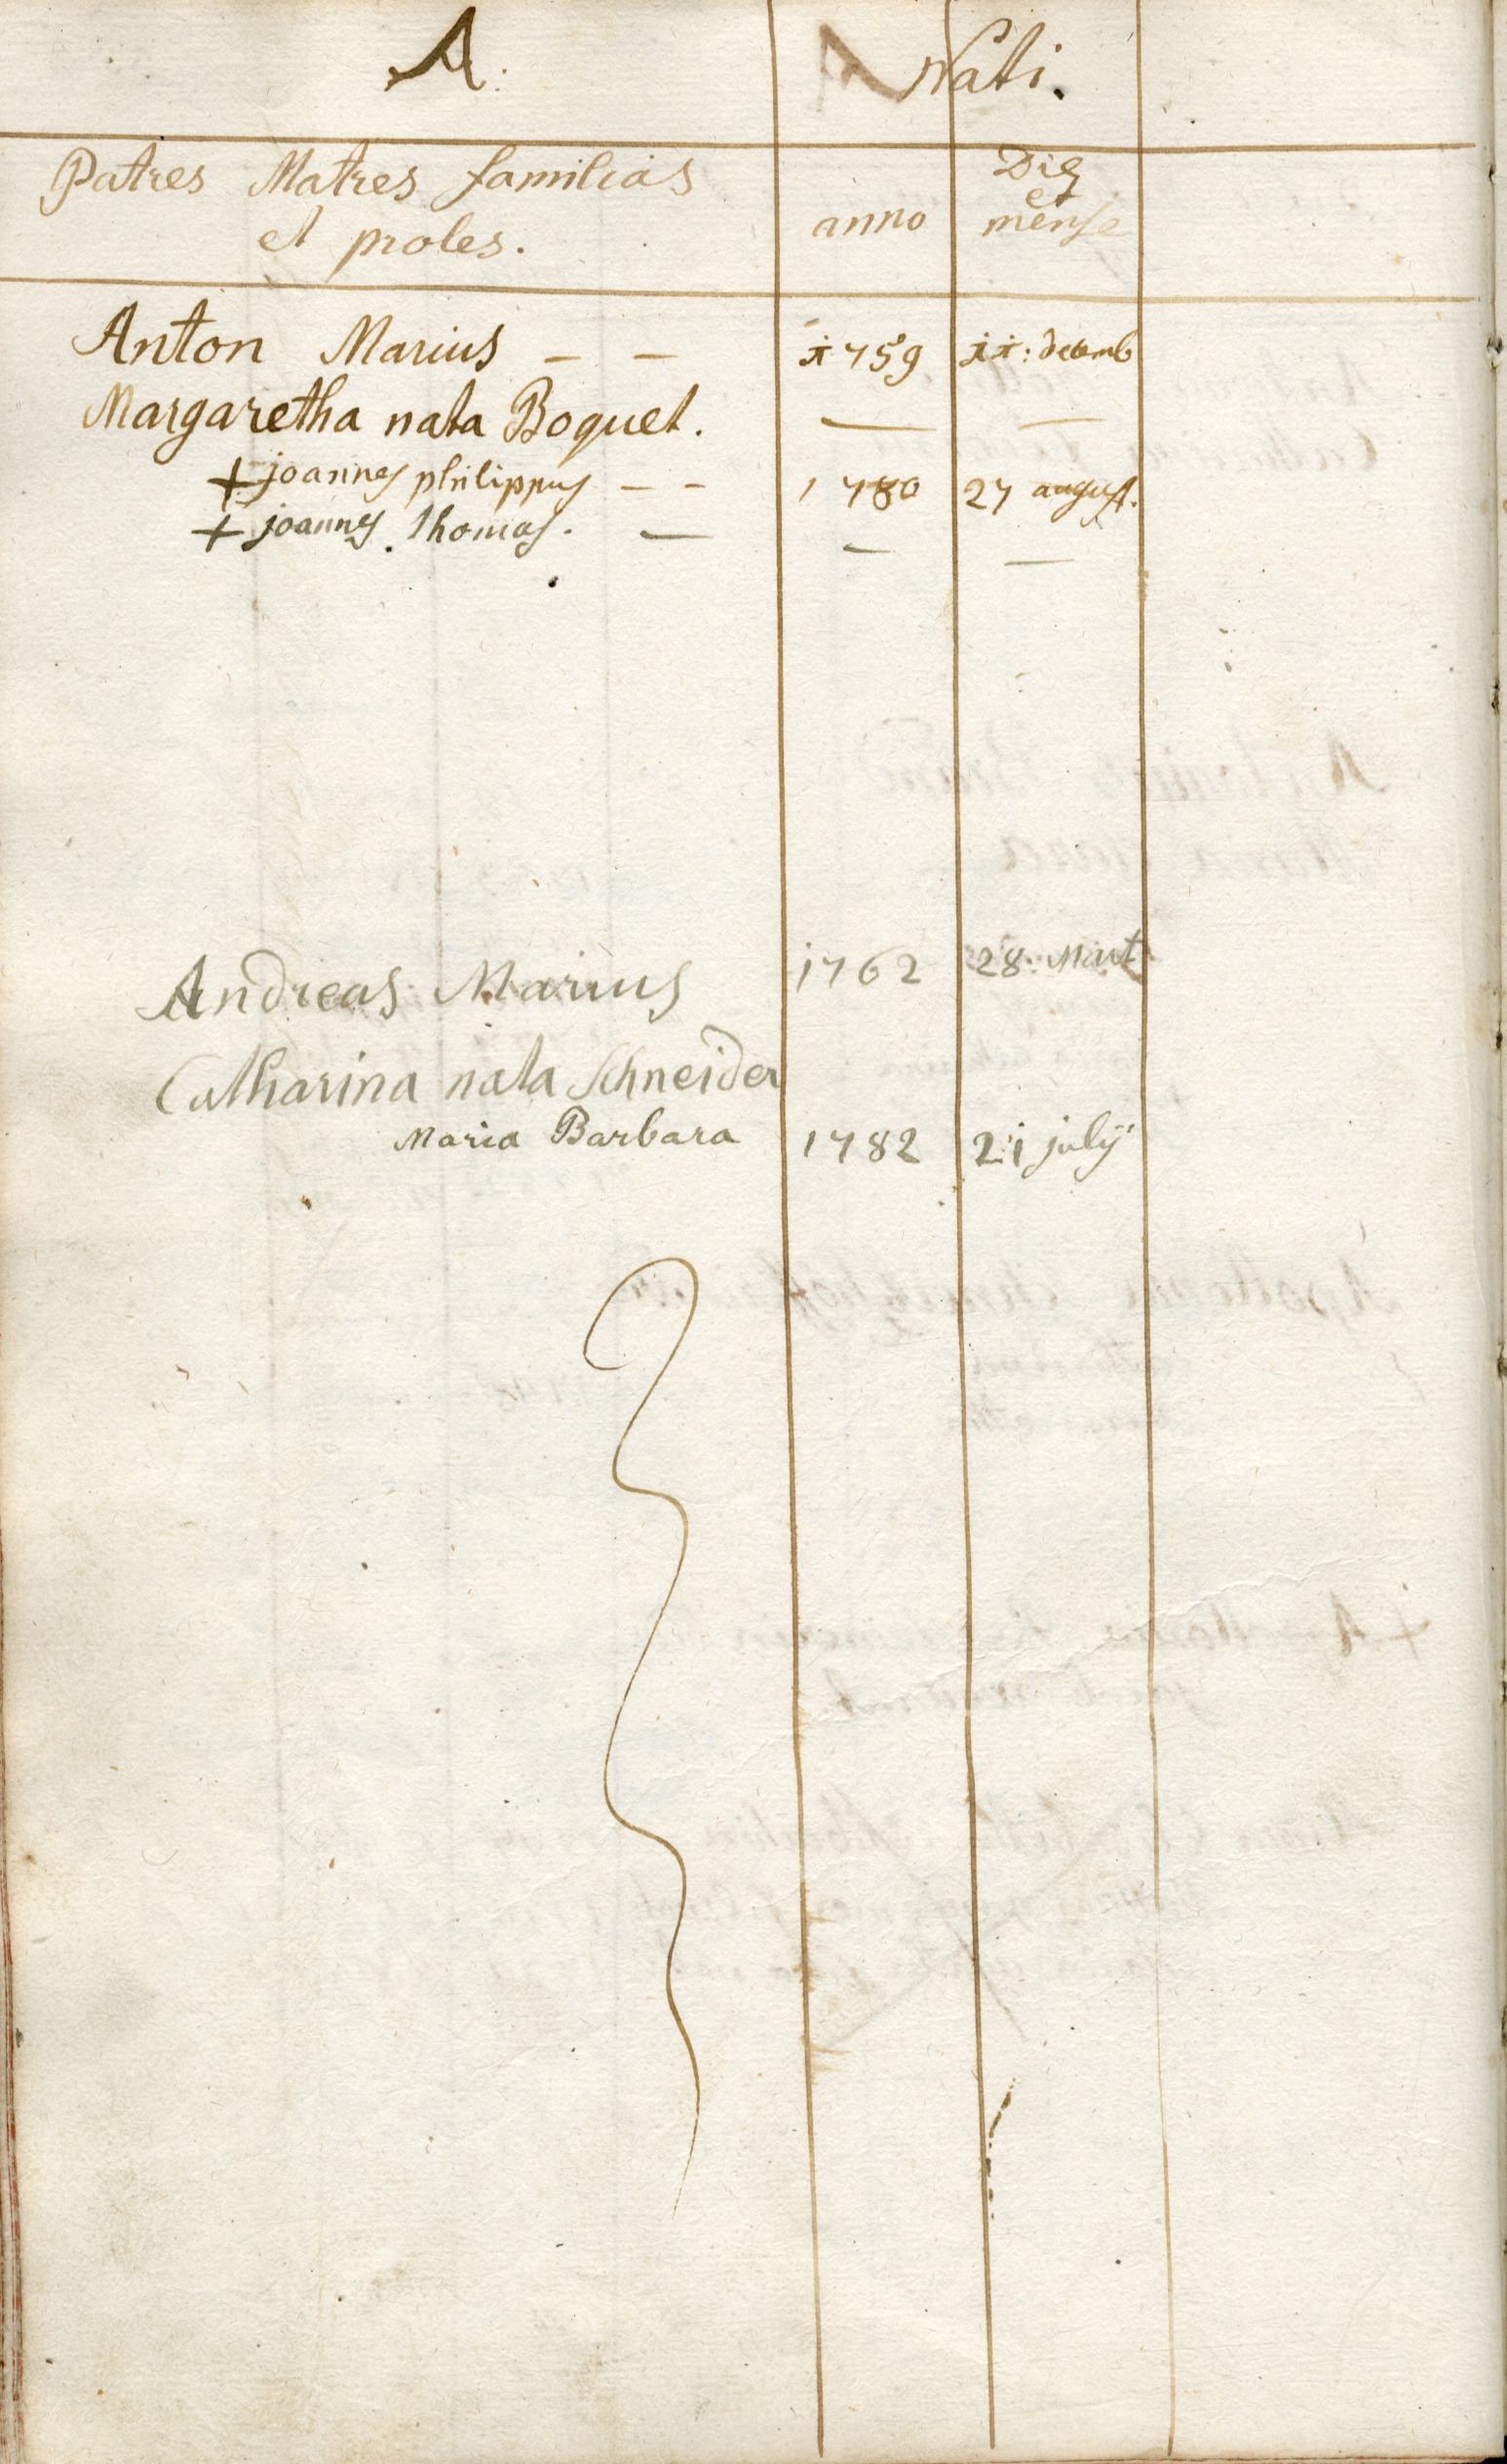 A. Nati.
Patres Matres familias
et proles.
anno
Die
et
mense
Anton Marius – – 1759 11: decemb
Margaretha nata Boquet. — —
+ joannes philippus – – 1780 27 august.
+ joannes thomas. — — —
Andreas Marius 1762 28. Mart
Catharina nata Schneider
Maria Barbara 1782 21 julij